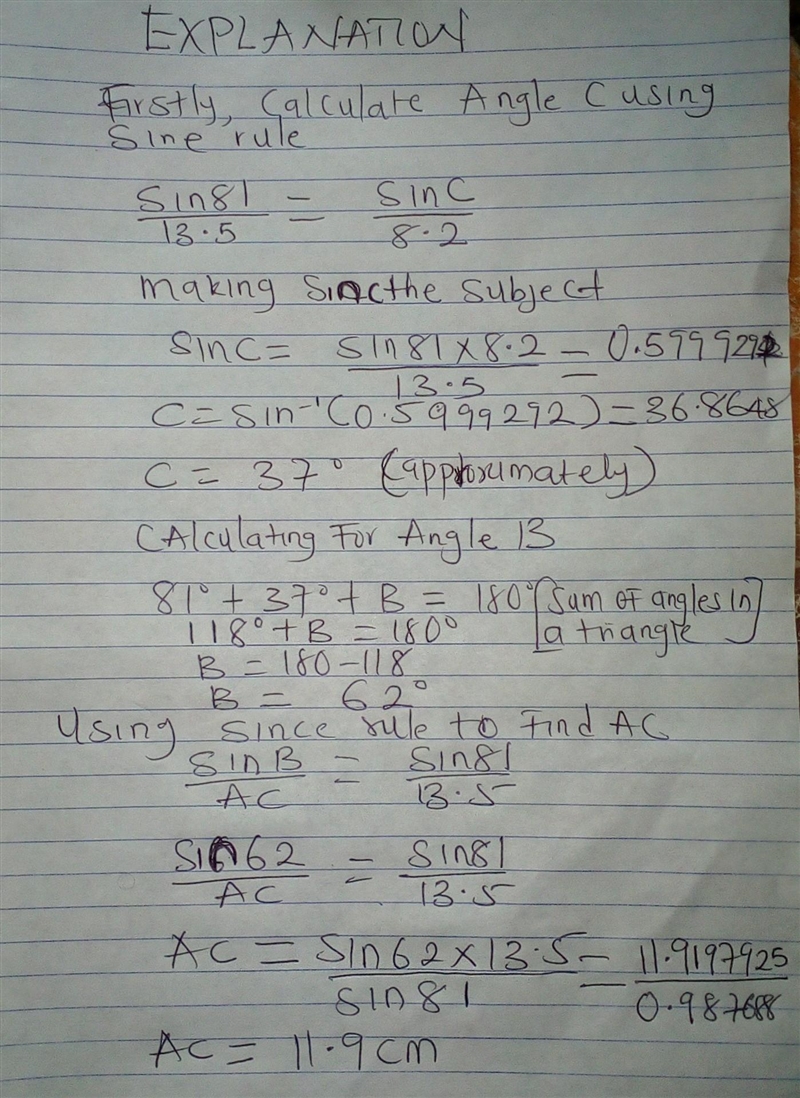 EXPLANATION
Firstly, Calculate Angle C using
Sine rule
Sin81 = SinC
13.5 8.2
making Sinc the Subject
SinC = Sin81 x 8.2 = 0.5999292
13.5
C = Sin⁻¹(0.5999292) = 36.8648
C = 37° (approximately)
CAlculating For Angle B
81° + 37° + B = 180° [Sum OF angles In
118° + B = 180° a triangle]
B = 180 - 118
B = 62°
Using Since rule to Find AC
SinB = Sin81
AC 13.5
Sin62 = Sin81
AC 13.5
AC = Sin62 x 13.5 = 11.9197925
Sin81 0.987688
AC = 11.9cm